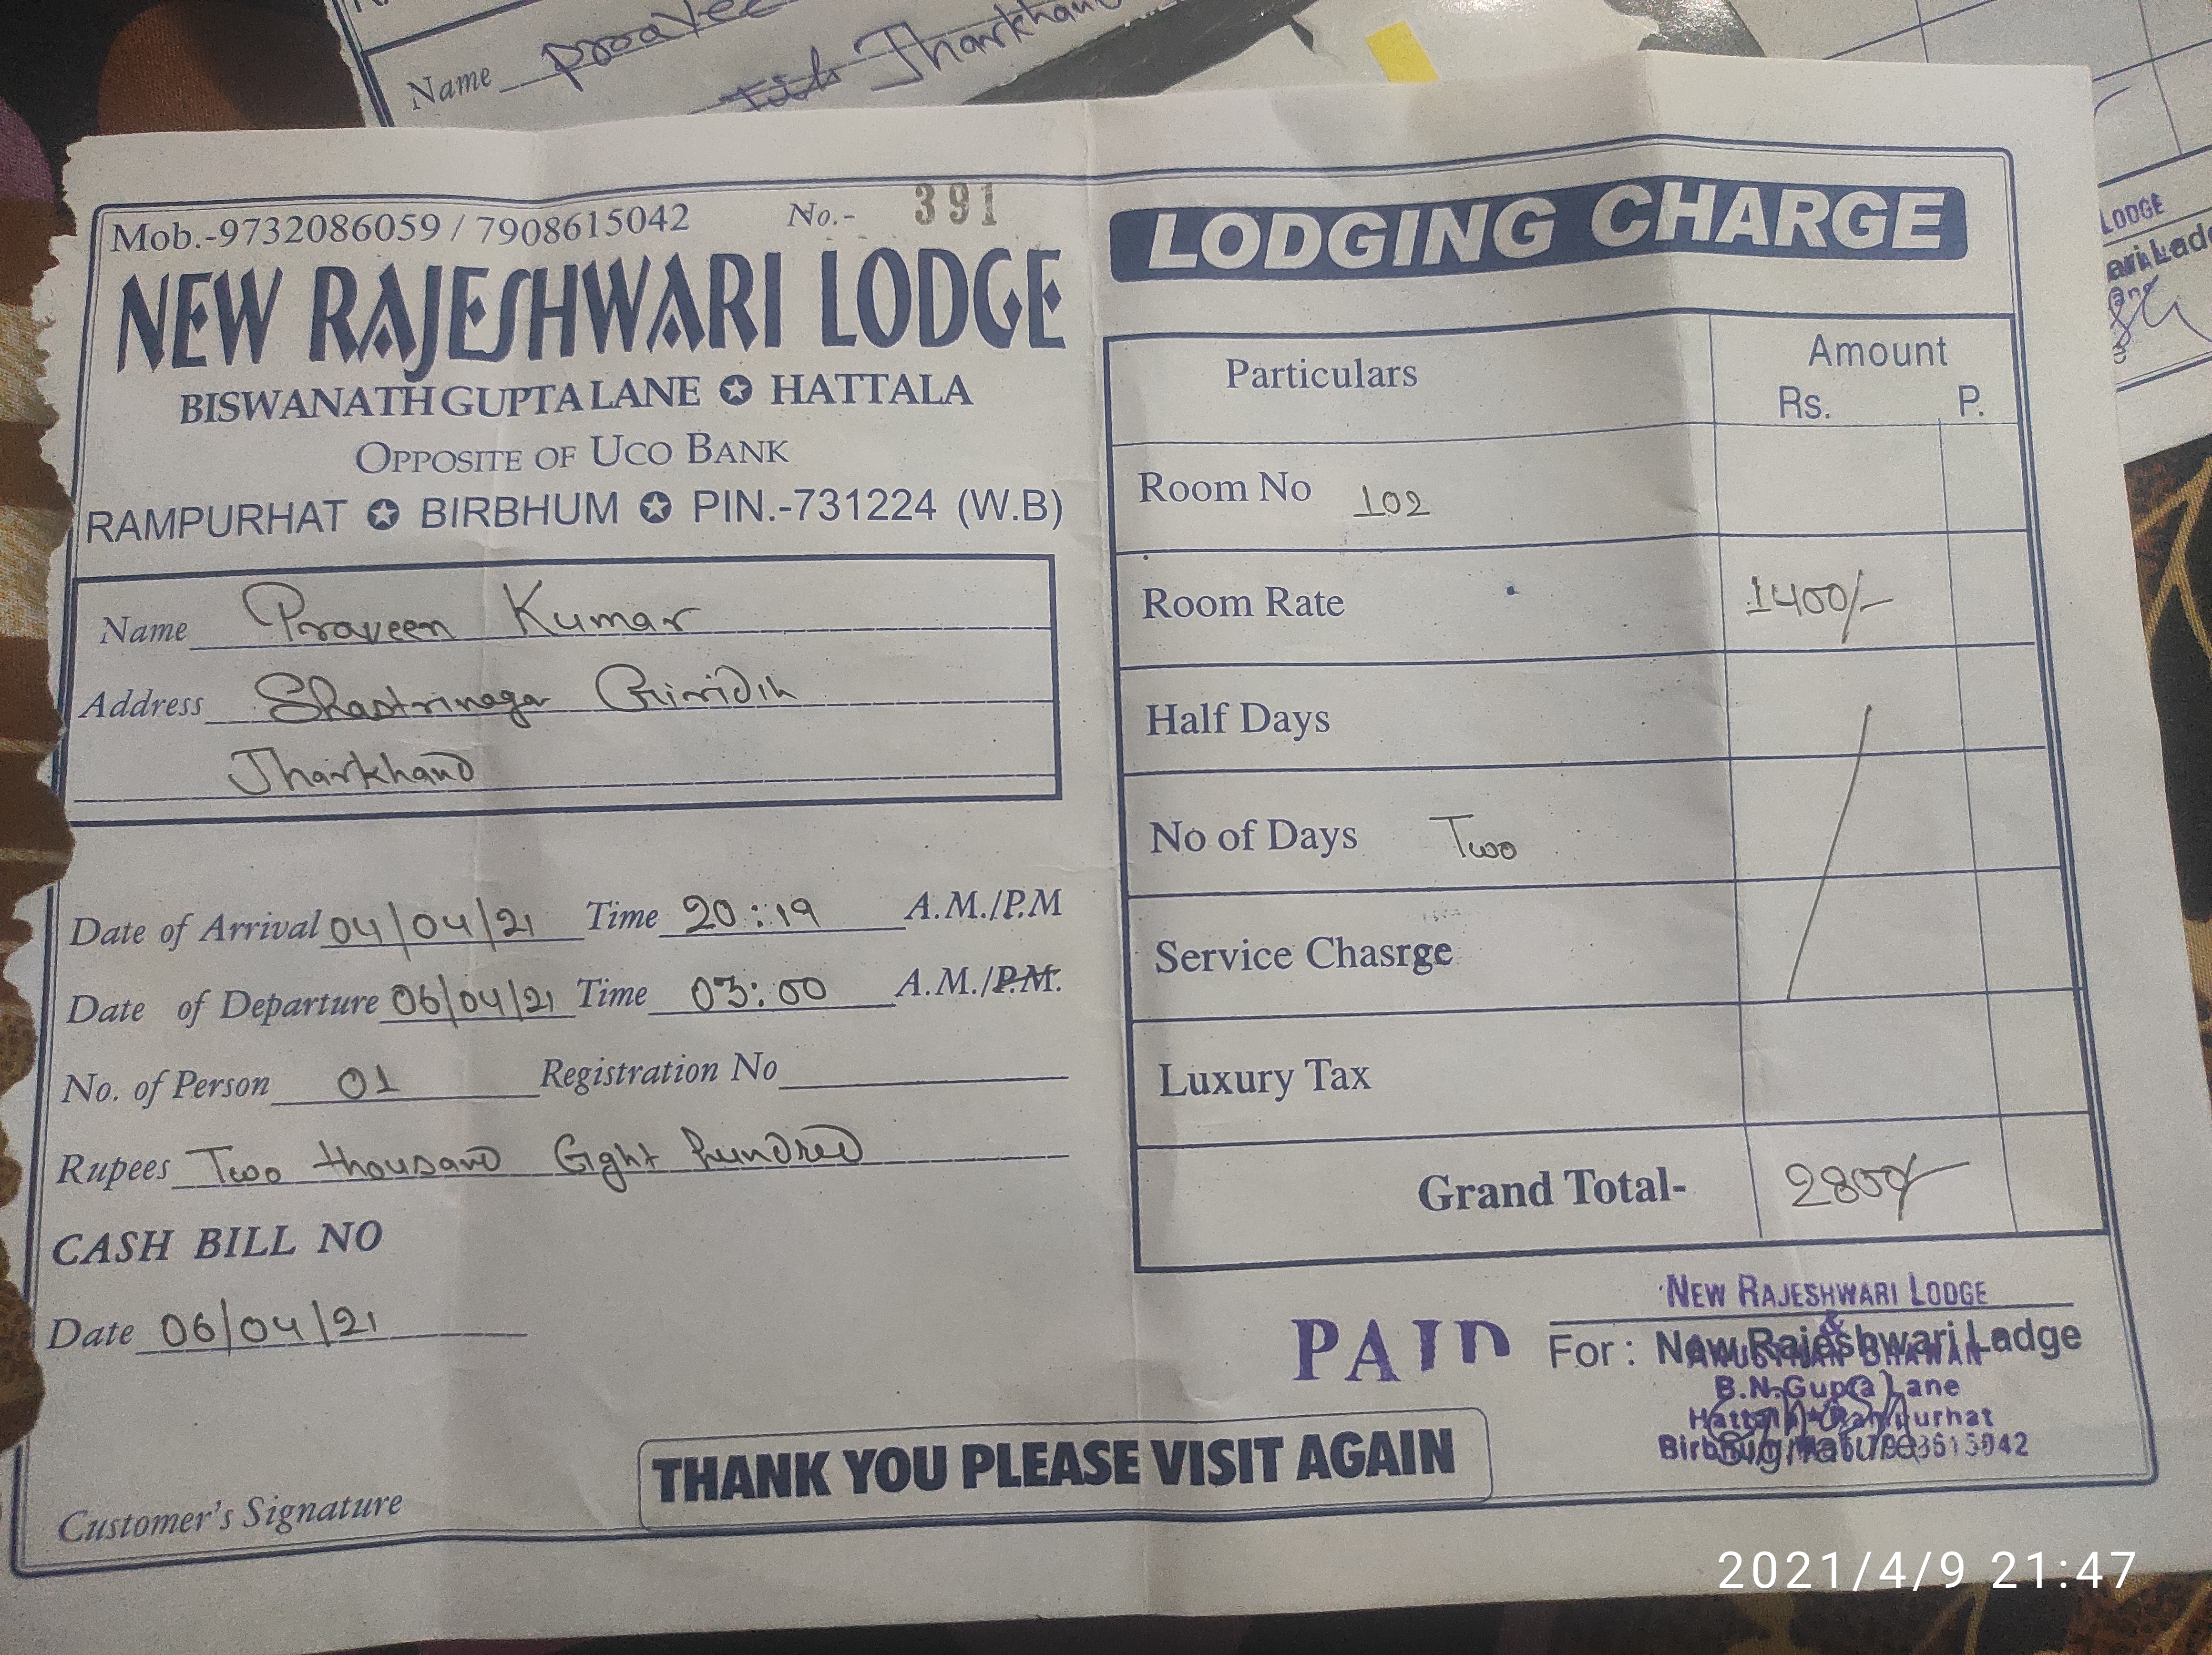 Name
Jharkhand
Mob.-9732086059 / 7908615042 No.- 391
NEW RAJESHWARI LODGE
BISWANATH GUPTA LANE ✪ HATTALA
OPPOSITE OF UCO BANK
RAMPURHAT ✪ BIRBHUM ✪ PIN.-731224 (W.B)
Name Praveen Kumar
Address Shastrinagar Giridih
Jharkhand
Date of Arrival 04/04/21 Time 20:19 A.M./P.M
Date of Departure 06/04/21 Time 03:00 A.M./P.M.
No. of Person 01 Registration No
Rupees Two thousand Eight hundred
CASH BILL NO
Date 06/04/21
Customer's Signature
LODGING CHARGE
Particulars Amount
Rs. P.
Room No 102
Room Rate 1400/-
Half Days
No of Days Two
Service Chasrge
Luxury Tax
Grand Total- 2800/-
PAID
NEW RAJESHWARI LODGE
&
For: New Rajeshwari Ladge
B.N.Gupta Lane
Signature
THANK YOU PLEASE VISIT AGAIN
LODGE
2021/4/9 21:47